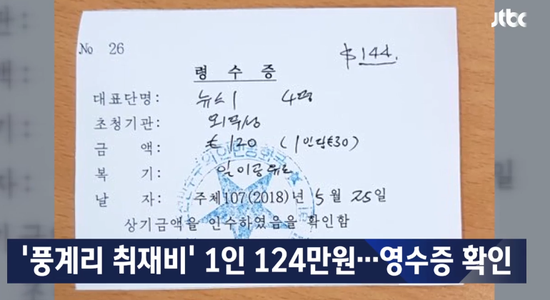 jtbc
No 26
$144.
령 수 증
대표단명: 뉴스1 4명
초청기관: 외무성
금 액: €120 (1인당€30)
복 기: 일이공유로
날 자: 주체107(2018)년 5월 25일
상기금액을 인수하였음을 확인함
'풍계리 취재비' 1인 124만원…영수증 확인